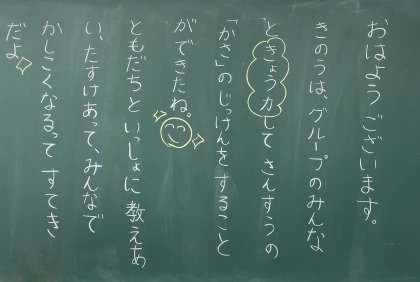 おはようございます。
きのうは、グループのみんな
ときょう力してさんすうの
「かさ」のじっけんをすること
ができたね。
ともだちといっしょに教えあ
い、たすけあって、みんなで
かしこくなるってすてき
だよ